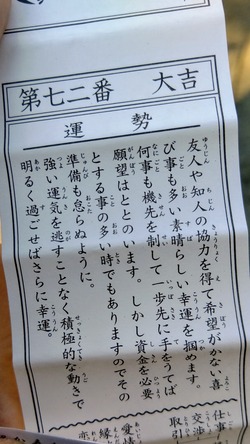 第七二番　大吉
運勢
友人や知人の協力を得て希望がかない喜
び事も多い素晴らしい幸運を掴めます。
何事も機先を制して一歩先に手をうてば
願望はととのいます。しかし資金を必要
とする事の多い時でもありますのでその
準備も怠らぬように。
強い運気を逃すことなく積極的な動きで
明るく過ごせばさらに幸運。
仕事
交渉
取引
愛情
縁